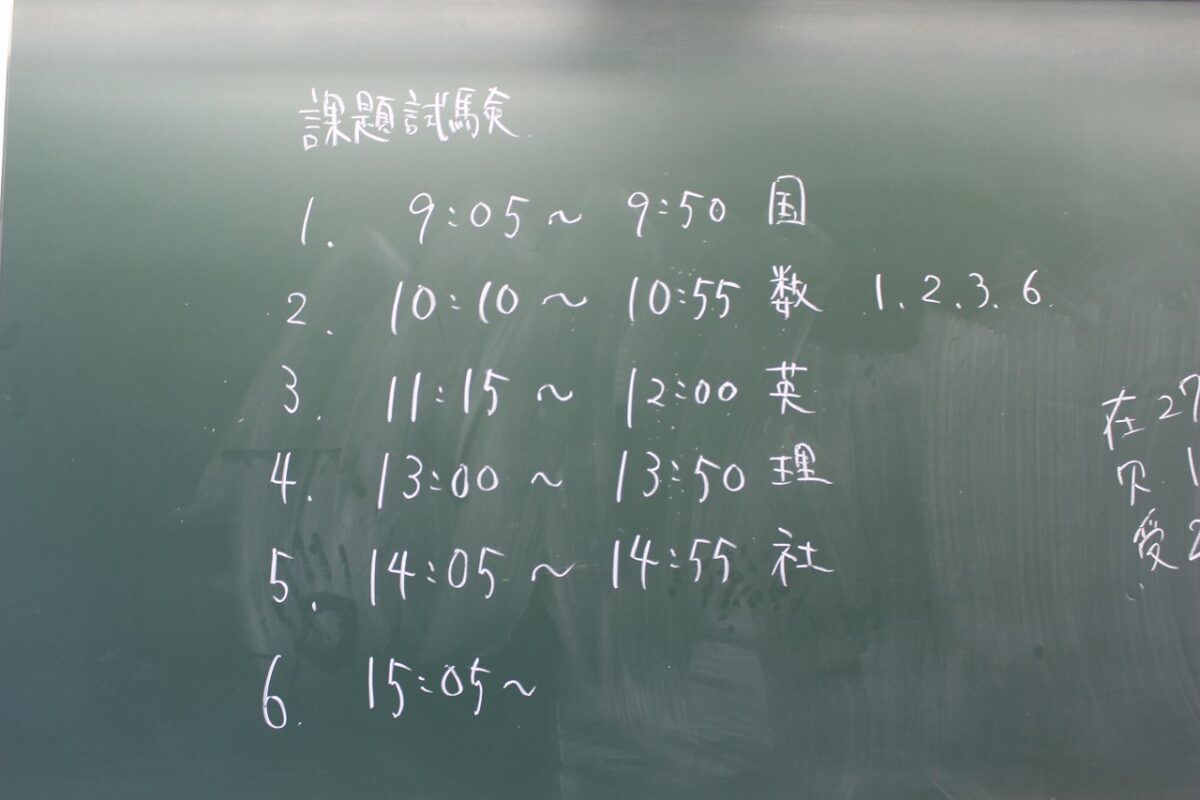 課題試験
1. 9:05～ 9:50 国
2. 10:10～ 10:55 数 1.2.3.6.
3. 11:15～ 12:00 英
4. 13:00～ 13:50 理
5. 14:05～ 14:55 社
6. 15:05～
在27
欠1
受2